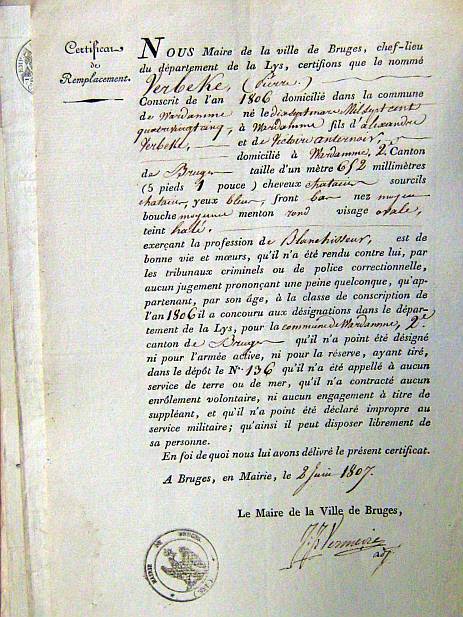 Certificat
de
Remplacement.
NOUS Maire de la ville de Bruges, chef-lieu
du département de la Lys, certifions que le nommé
Verbeke, (Pierre)
Conscrit de l'an 1806 domicilié dans la commune
de Wardamme né le dix sept mars Mil sept cent
quatre vingt cinq, à Wardamme fils d'alexandre
Verbeke, et de Victoire
domicilié à Wardamme, 2e Canton
de Bruges taille d'un mètre 652 millimètres
(5 pieds 1 pouce) cheveux chatain sourcils
chatain, yeux bleu, front bas nez moyen
bouche moyenne menton rond visage ovale,
teint hallé.
exerçant la profession de Blanchisseur, est de
bonne vie et mœurs, qu'il n'a été rendu contre lui, par
les tribunaux criminels ou de police correctionnelle,
aucun jugement prononçant une peine quelconque, qu'ap-
partenant, par son âge, à la classe de conscription de
l'an 1806 il a concouru aux désignations dans le dépar-
tement de la Lys, pour la commune de Wardamme, 2e
canton de Bruges qu'il n'a point été désigné
ni pour l'armée active, ni pour la réserve, ayant tiré,
dans le dépôt le N° 136 qu'il n'a été appellé à aucun
service de terre ou de mer, qu'il n'a contracté aucun
enrôlement volontaire, ni aucun engagement à titre de
suppléant, et qu'il n'a point été déclaré impropre au
service militaire; qu'ainsi il peut disposer librement de
sa personne.
En foi de quoi nous lui avons délivré le présent certificat.
A Bruges, en Mairie, le 2 Juin 1807.
Le Maire de la Ville de Bruges,
MAIRIE DE BRUGES